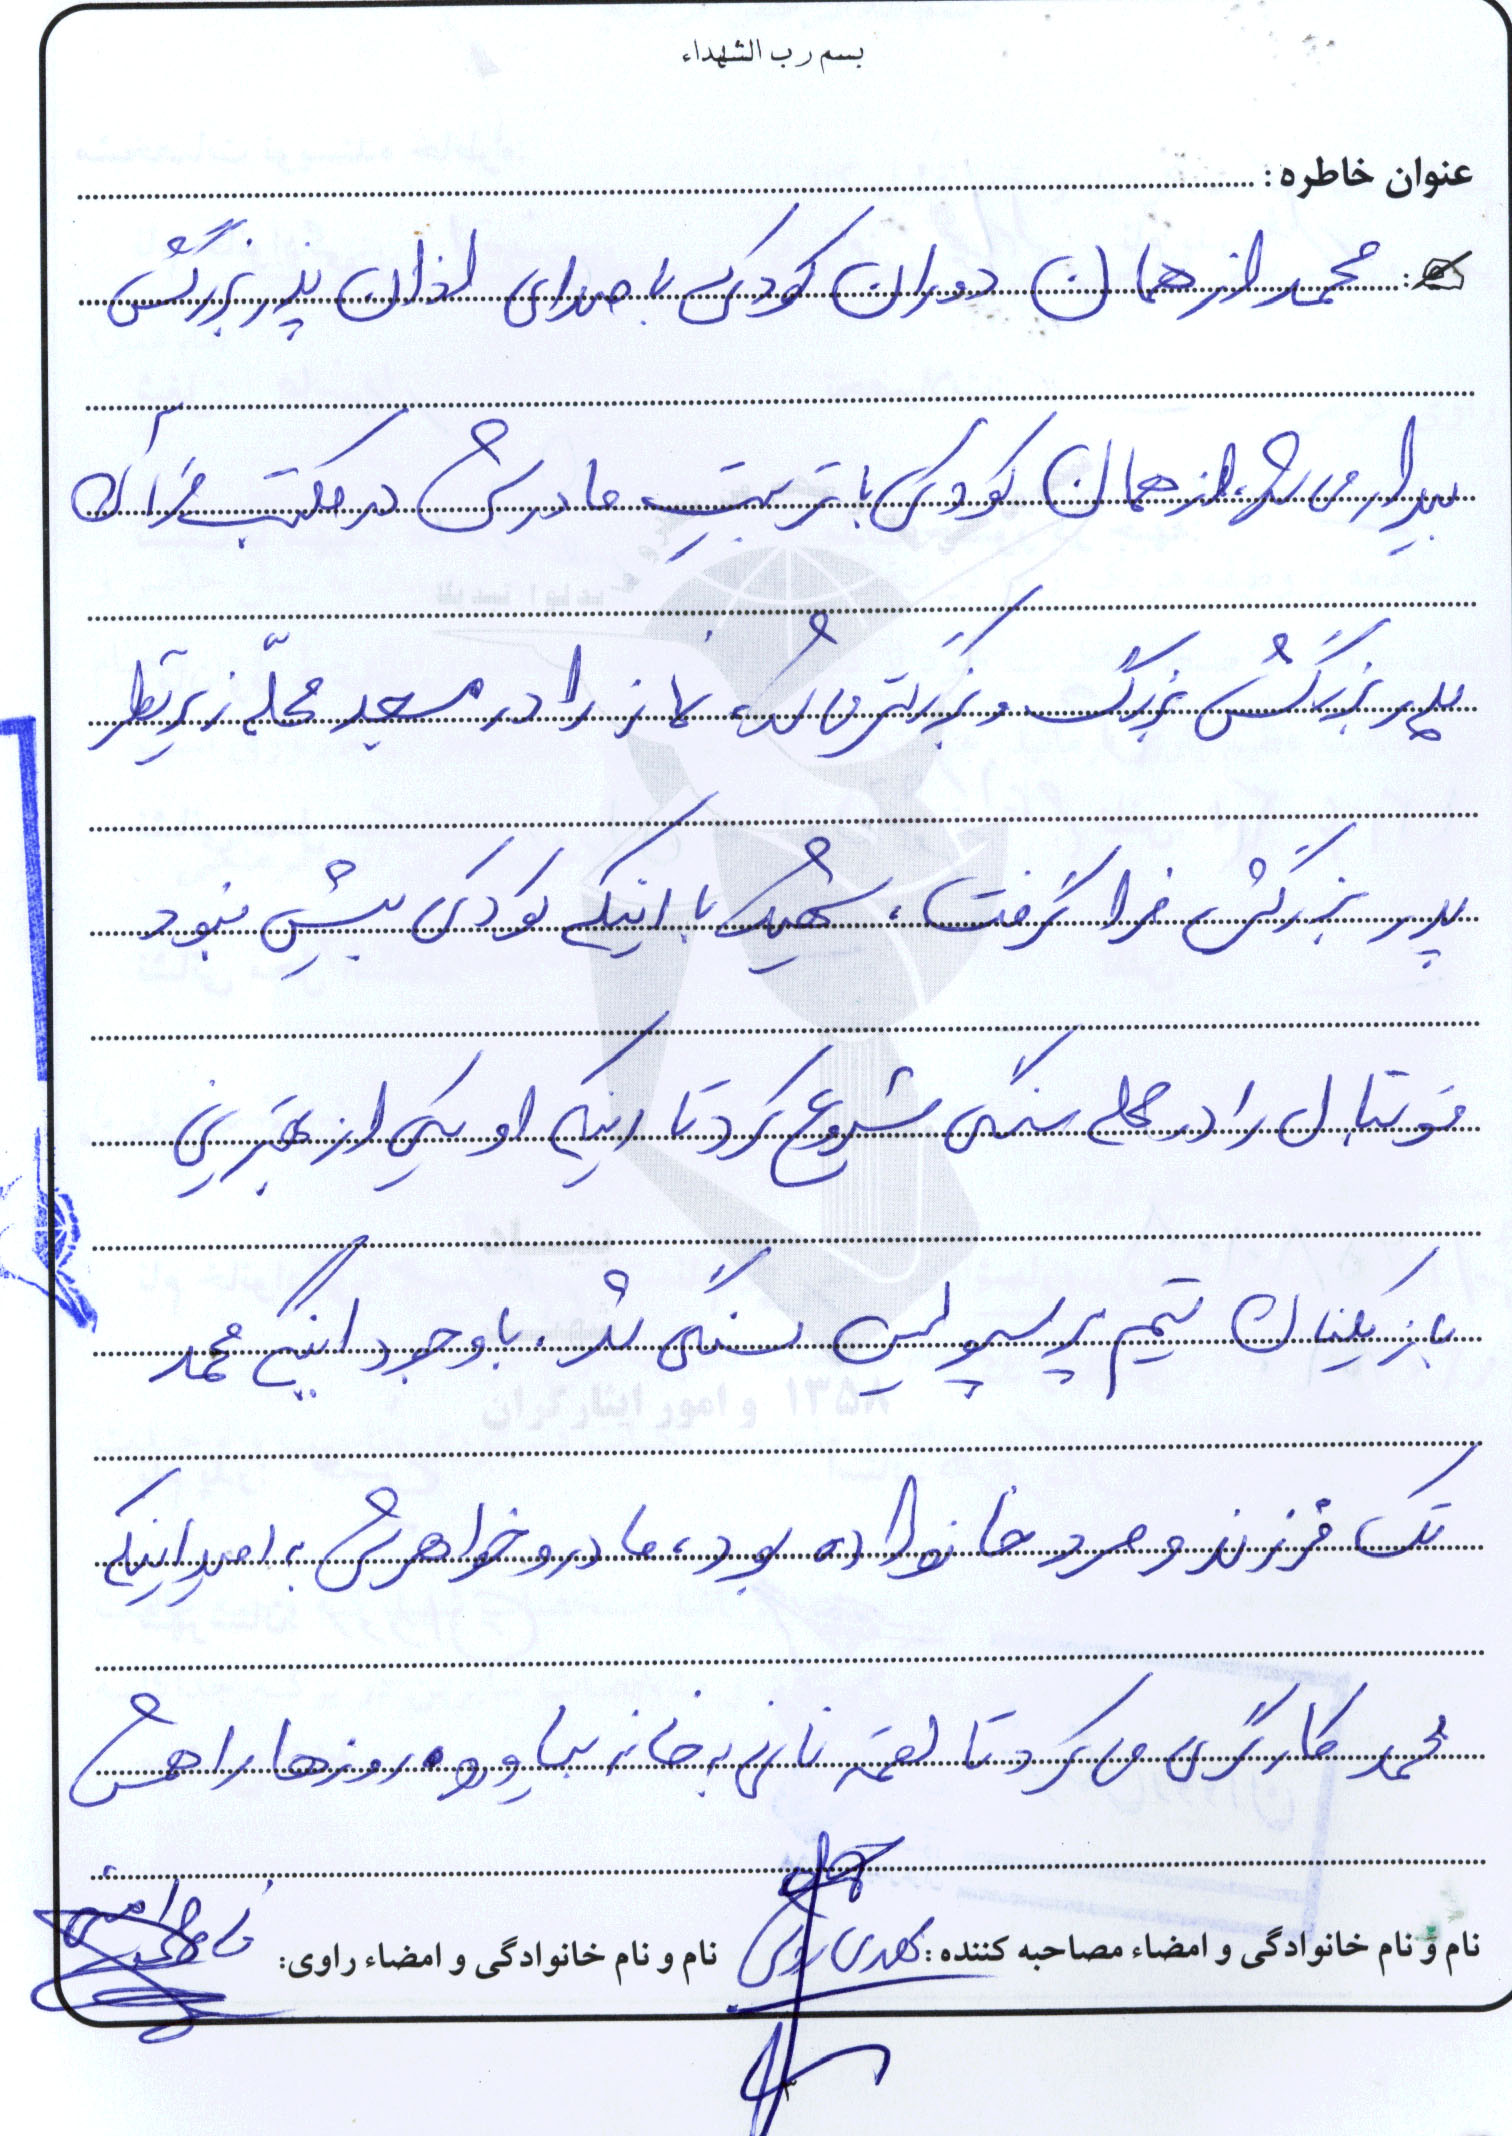 بسم رب الشهداء
عنوان خاطره :
محمد از همان دوران کودکی با صدای اذان پدر بزرگش
بیدار می شد، از همان کودکی با تربیت مادرش در مکتب قرآن
پدر بزرگش بزرگ و بزرگتر می شد، نماز را در مسجد محلّه زیر نظر
پدر بزرگش فرا گرفت، شهید با اینکه کودکی بیش نبود
فوتبال را در محله سنگی شروع کرد تا اینکه او یکی از بهترین
بازیکنان تیم پرسپولیس سنگی شد. با وجود اینکه محمد
تک فرزند و مرد خانواده بود، مادر و خواهرش به امید اینکه
محمد کارگری می کرد تا لقمه نانی به خانه بیاورد روزها را همش
نام و نام خانوادگی و امضاء مصاحبه کننده :
نام و نام خانوادگی و امضاء راوی:
۳